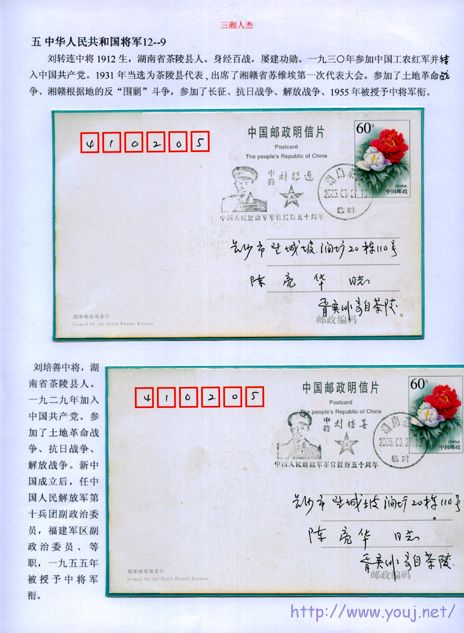 三湘人杰
五 中华人民共和国将军12--9
刘转连中将 1912 生，湖南省茶陵县人。身经百战，屡建功勋。一九三〇年参加中国工农红军并转
入中国共产党。1931 年当选为茶陵县代表、出席了湘赣省苏维埃第一次代表大会。参加了土地革命战
争、湘赣根据地的反“围剿”斗争，参加了长征、抗日战争、解放战争、1955 年被授予中将军衔。
410205
中国邮政明信片
Postcard
The people's Republic of China
60分
CHINA
中国邮政
中将
中国人民解放军军官授衔五十周年
临时
长沙市
20栋110号
陈亮华 同志
自茶陵
邮政编码
国家邮政局发行
Issued by the State Postal Bureau
刘培善中将，湖
南省茶陵县人。
一九二九年加入
中国共产党。参
加了土地革命战
争、抗日战争、
解放战争。新中
国成立后，任中
国人民解放军第
十兵团副政治委
员，福建军区副
政治委员、等
职，一九五五年
被授予中将军
衔。
410205
中国邮政明信片
Postcard
The people's Republic of China
60分
CHINA
中国邮政
中将 刘培善
中国人民解放军军官授衔五十周年
临时
长沙市
20栋110号
陈亮华 同志
自茶陵
邮政编码
国家邮政局发行
Issued by the State Postal Bureau
http://www.youj.net/